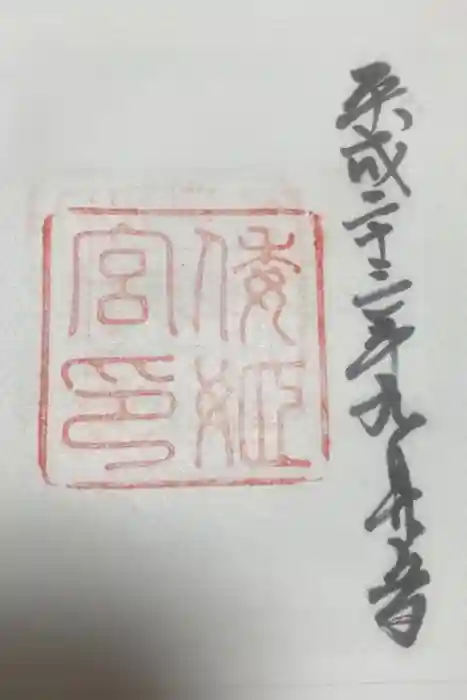 平成二十三年九月五日
倭姫
宮印